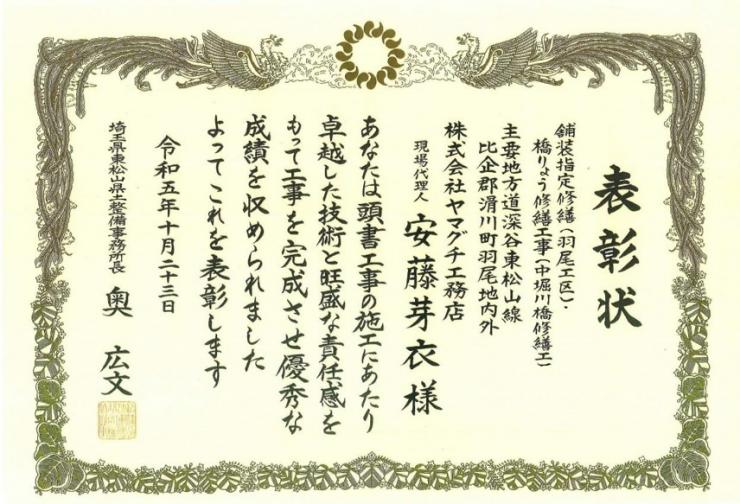 表彰状
舗装指定修繕（羽尾工区）・
橋りょう修繕工事（中堀川橋修繕工）
主要地方道深谷東松山線
比企郡滑川町羽尾地内外
株式会社ヤマグチ工務店
現場代理人 安藤芽衣様
あなたは頭書工事の施工にあたり
卓越した技術と旺盛な責任感を
もって工事を完成させ優秀な
成績を収められました
よってこれを表彰します
令和五年十月二十三日
埼玉県東松山県土整備事務所長 奥広文